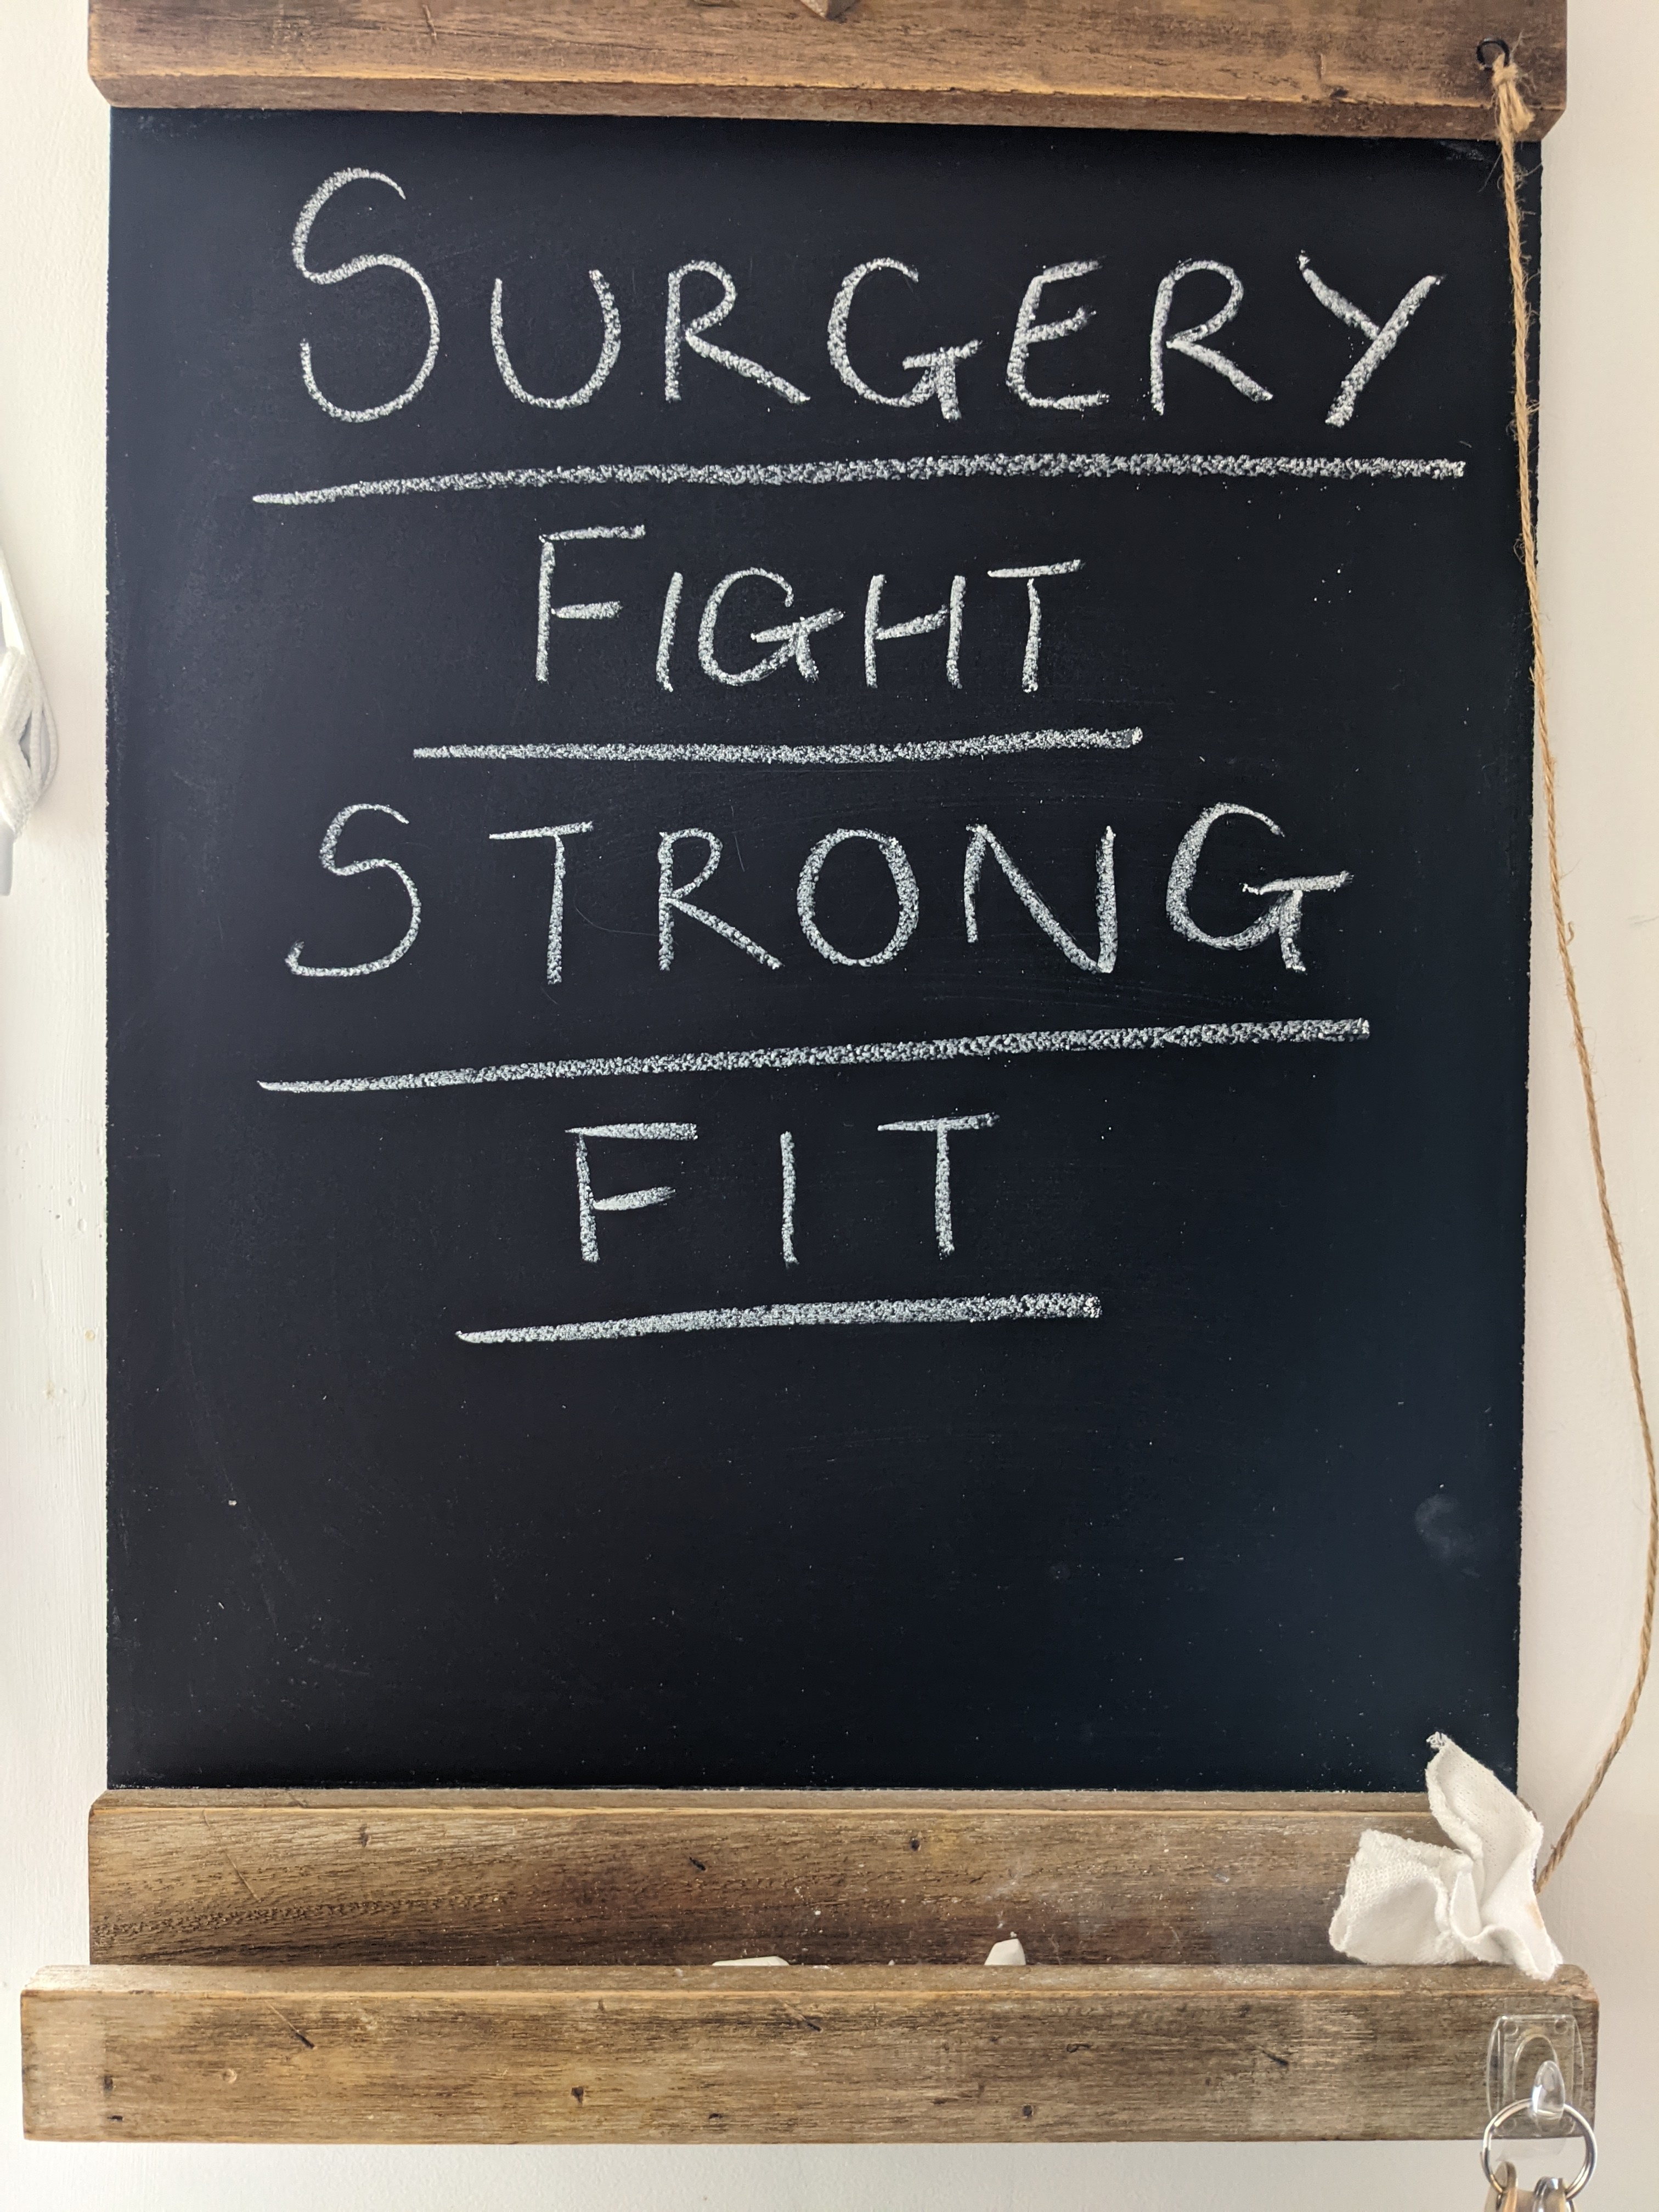 SURGERY
FIGHT
STRONG
FIT